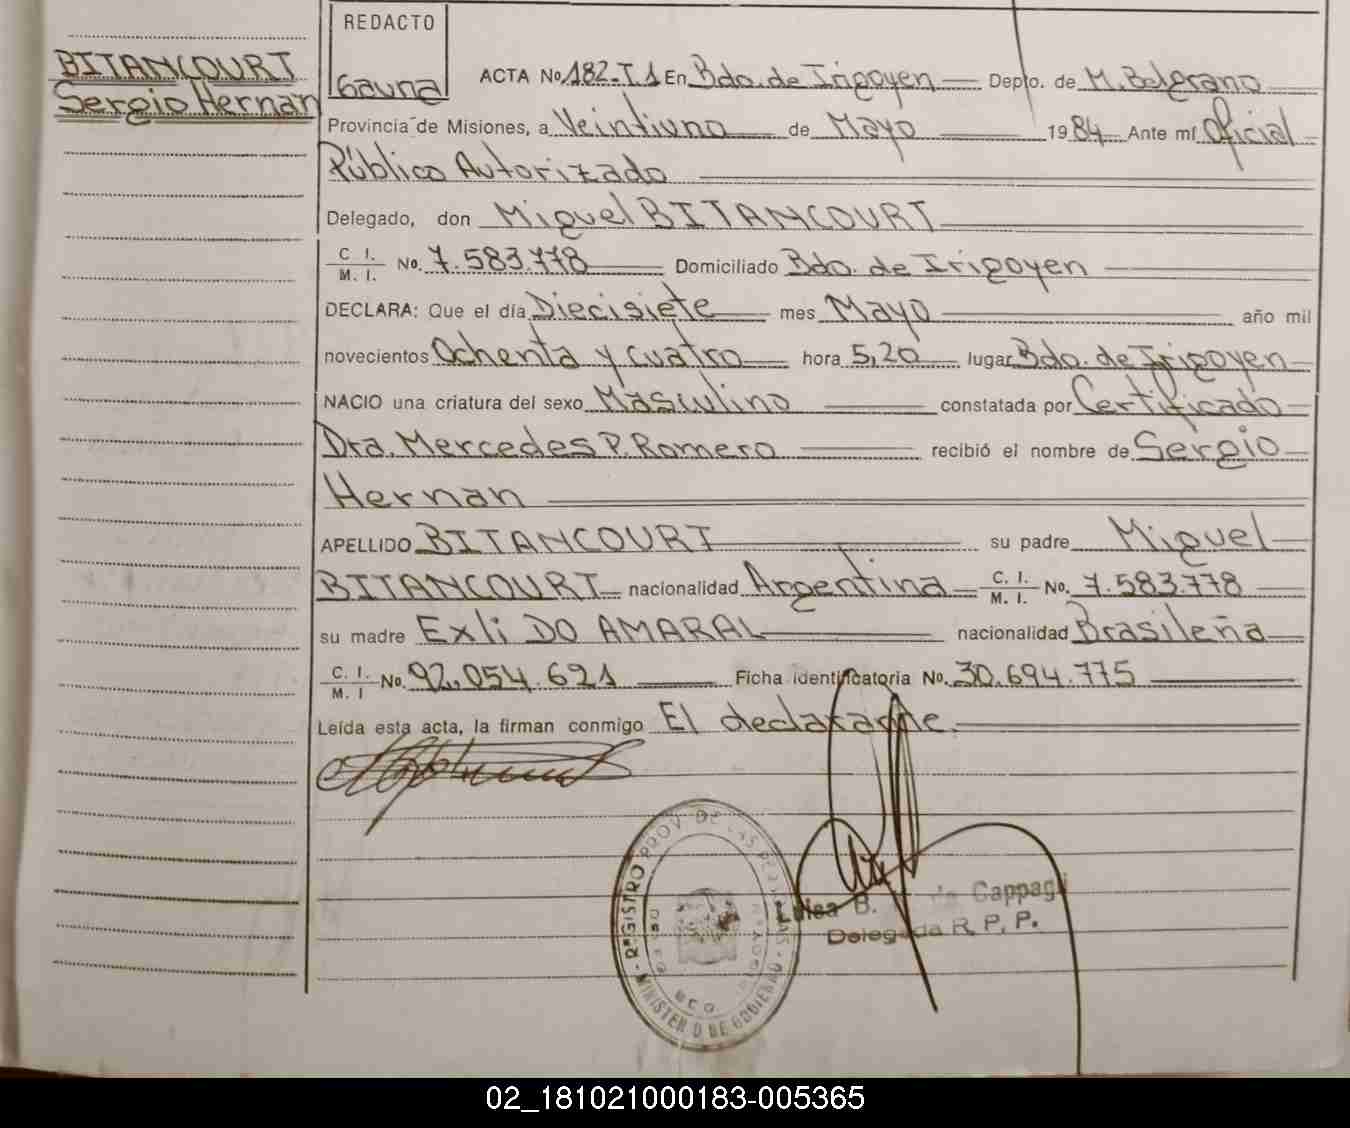 BITANCOURT
Sergio Hernan
REDACTO
Gauna
ACTA No. 182-T1 En Bdo. de Irigoyen Depto. de M. Belgrano
Provincia de Misiones, a Veintiuno de Mayo 1984 Ante mí Oficial
Público Autorizado
Delegado, don Miguel BITANCOURT
C. I.
M. I. No. 7.583.778 Domiciliado Bdo. de Irigoyen
DECLARA: Que el día Diecisiete mes Mayo año mil
novecientos Ochenta y cuatro hora 5,20 lugar Bdo. de Irigoyen
NACIO una criatura del sexo Masculino constatada por Certificado
Dra. Mercedes P. Romero recibió el nombre de Sergio
Hernan
APELLIDO BITANCOURT su padre Miguel
BITANCOURT nacionalidad Argentina C. I. M. I. No. 7.583.778
su madre Exli DO AMARAL nacionalidad Brasileña
C. I. M. I No. 92.054.621 Ficha identificatoria No. 30.694.775
Leída esta acta, la firman conmigo El declarante.
REGISTRO PROV. DE LAS PERSONAS
MINISTERIO DE GOBIERNO
Luisa B. de Cappagli
Delegada R. P. P.
02_181021000183-005365